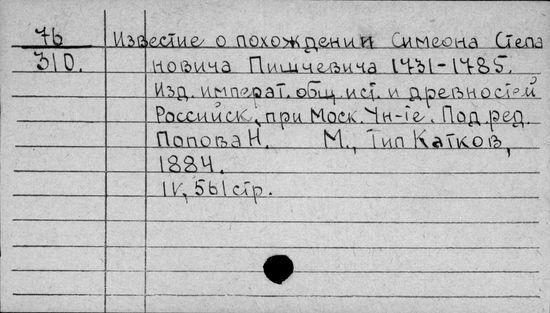 76 Известие о похождении Симеона Степа
310. новича Пишчевича 1731-1785.
Изд. императ. общ. ист. и древностей
Российск. при Моск. Ун-те. Под ред.
Попова Н. М., Тип Катков,
1884.
IV, 561 стр.